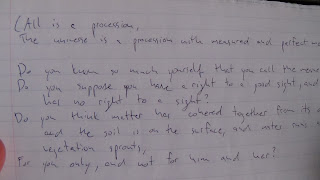 (All is a procession,
The universe is a procession with measured and perfect mo
Do you know so much yourself that you call the
Do you suppose you have a right to a good sight, and
has no right to a sight?
Do you think matter has cohered together from its
and the soil is on the surface, and water runs a
vegetation sprouts,
For you only, and not for him and her?